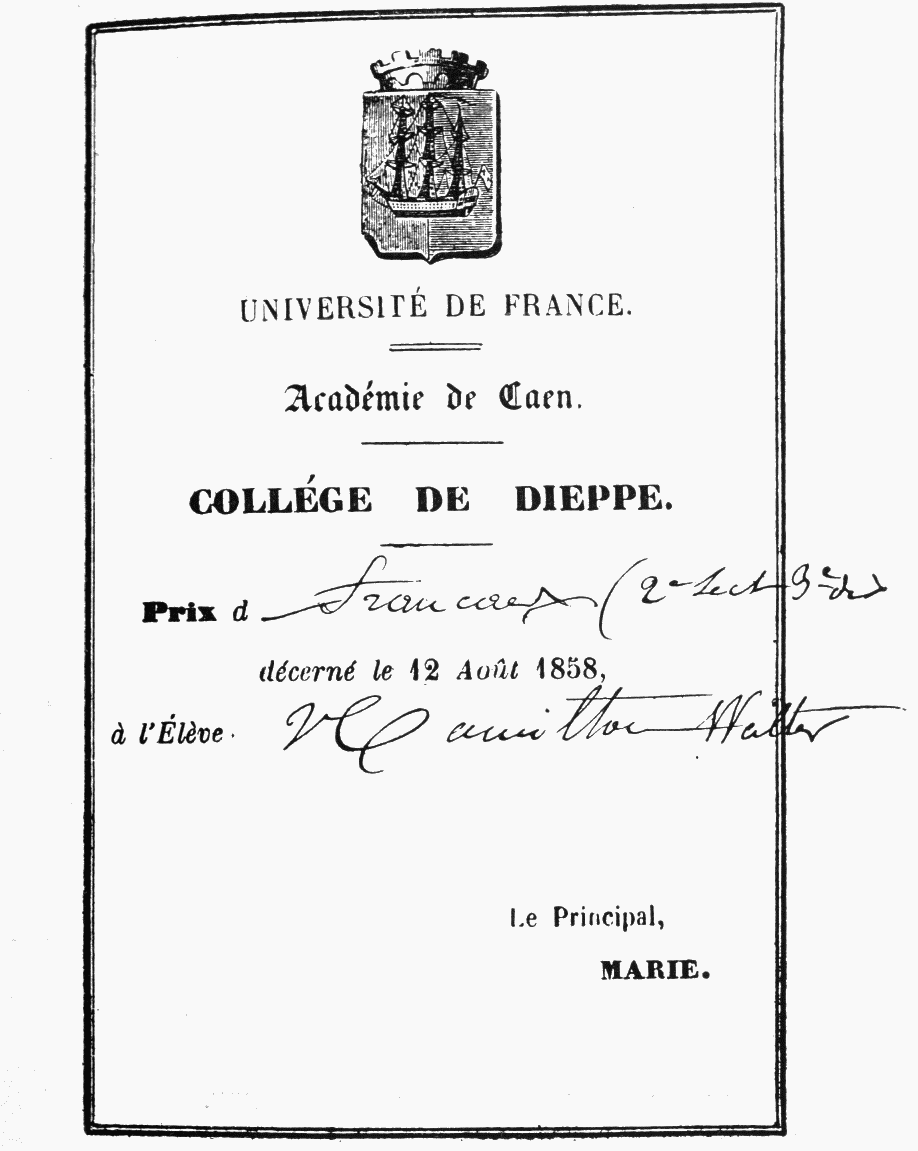 UNIVERSITÉ DE FRANCE.
Académie de Caen.
COLLÉGE DE DIEPPE.
Prix d Francaes (2e Sect
décerné le 12 Août 1858,
à l'Élève Hamilton Walter
Le Principal,
MARIE.